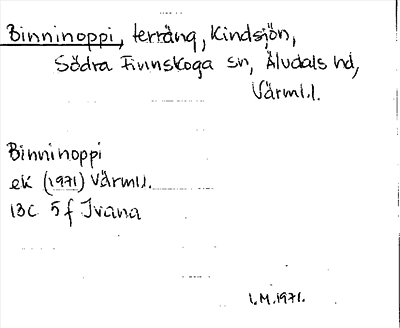 Binninoppi, terräng, Kindsjön,
Södra Finnskoga sn, Älvdals hd,
Värml.l.
Binninoppi
ek (1971) Värml.l.
13C 5f Ivana
I.M.1971.